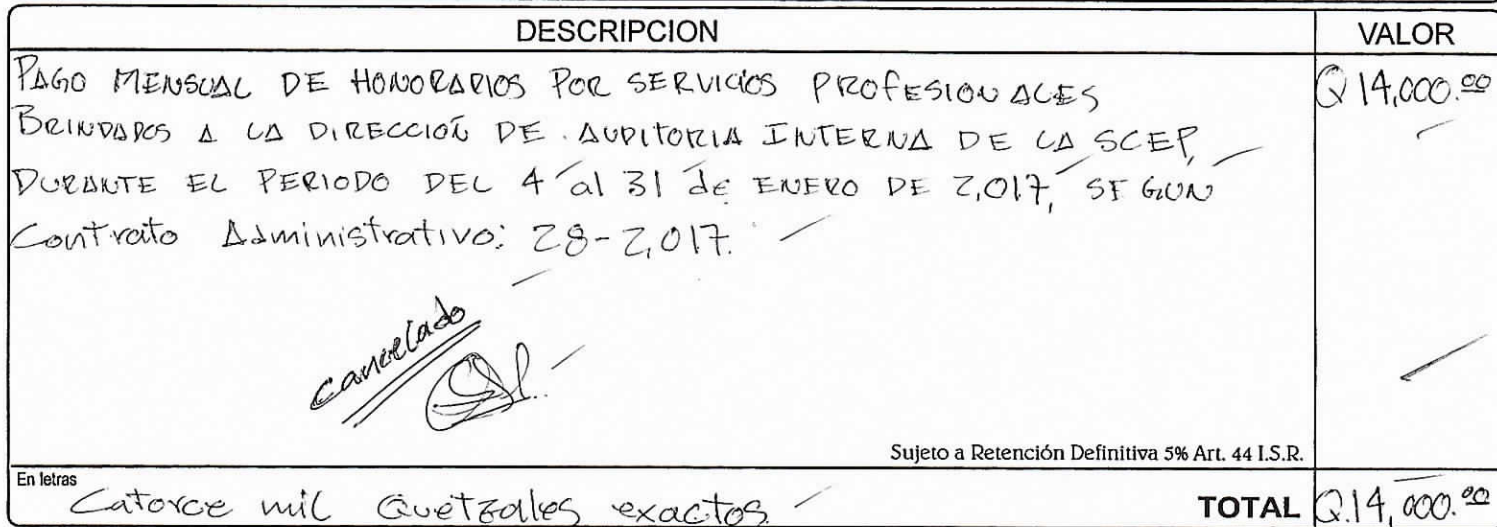 DESCRIPCION VALOR
PAGO MENSUAL DE HONORARIOS POR SERVICIOS PROFESIONALES Q 14,000.00
BRINDADOS A LA DIRECCIÓN DE AUDITORIA INTERNA DE LA SCEP,
DURANTE EL PERIODO DEL 4 al 31 de ENERO DE 2,017, SEGUN
Contrato Administrativo: 28-2,017.
cancelado
Sujeto a Retención Definitiva 5% Art. 44 I.S.R.
En letras
Catorce mil Quetzales exactos. TOTAL Q.14,000.00